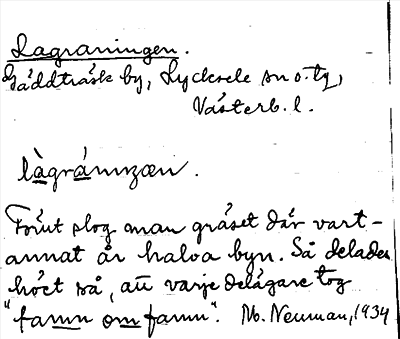 Lagraningen.
Gäddträsk by, Lycksele sn o. tg,
Västerb. l.
làgránnzæn.
Förut slog man gräset där vart-
annat år halva byn. Så delades
höet så, att varje delägare tog
"famn om famn". No. Neuman, 1934